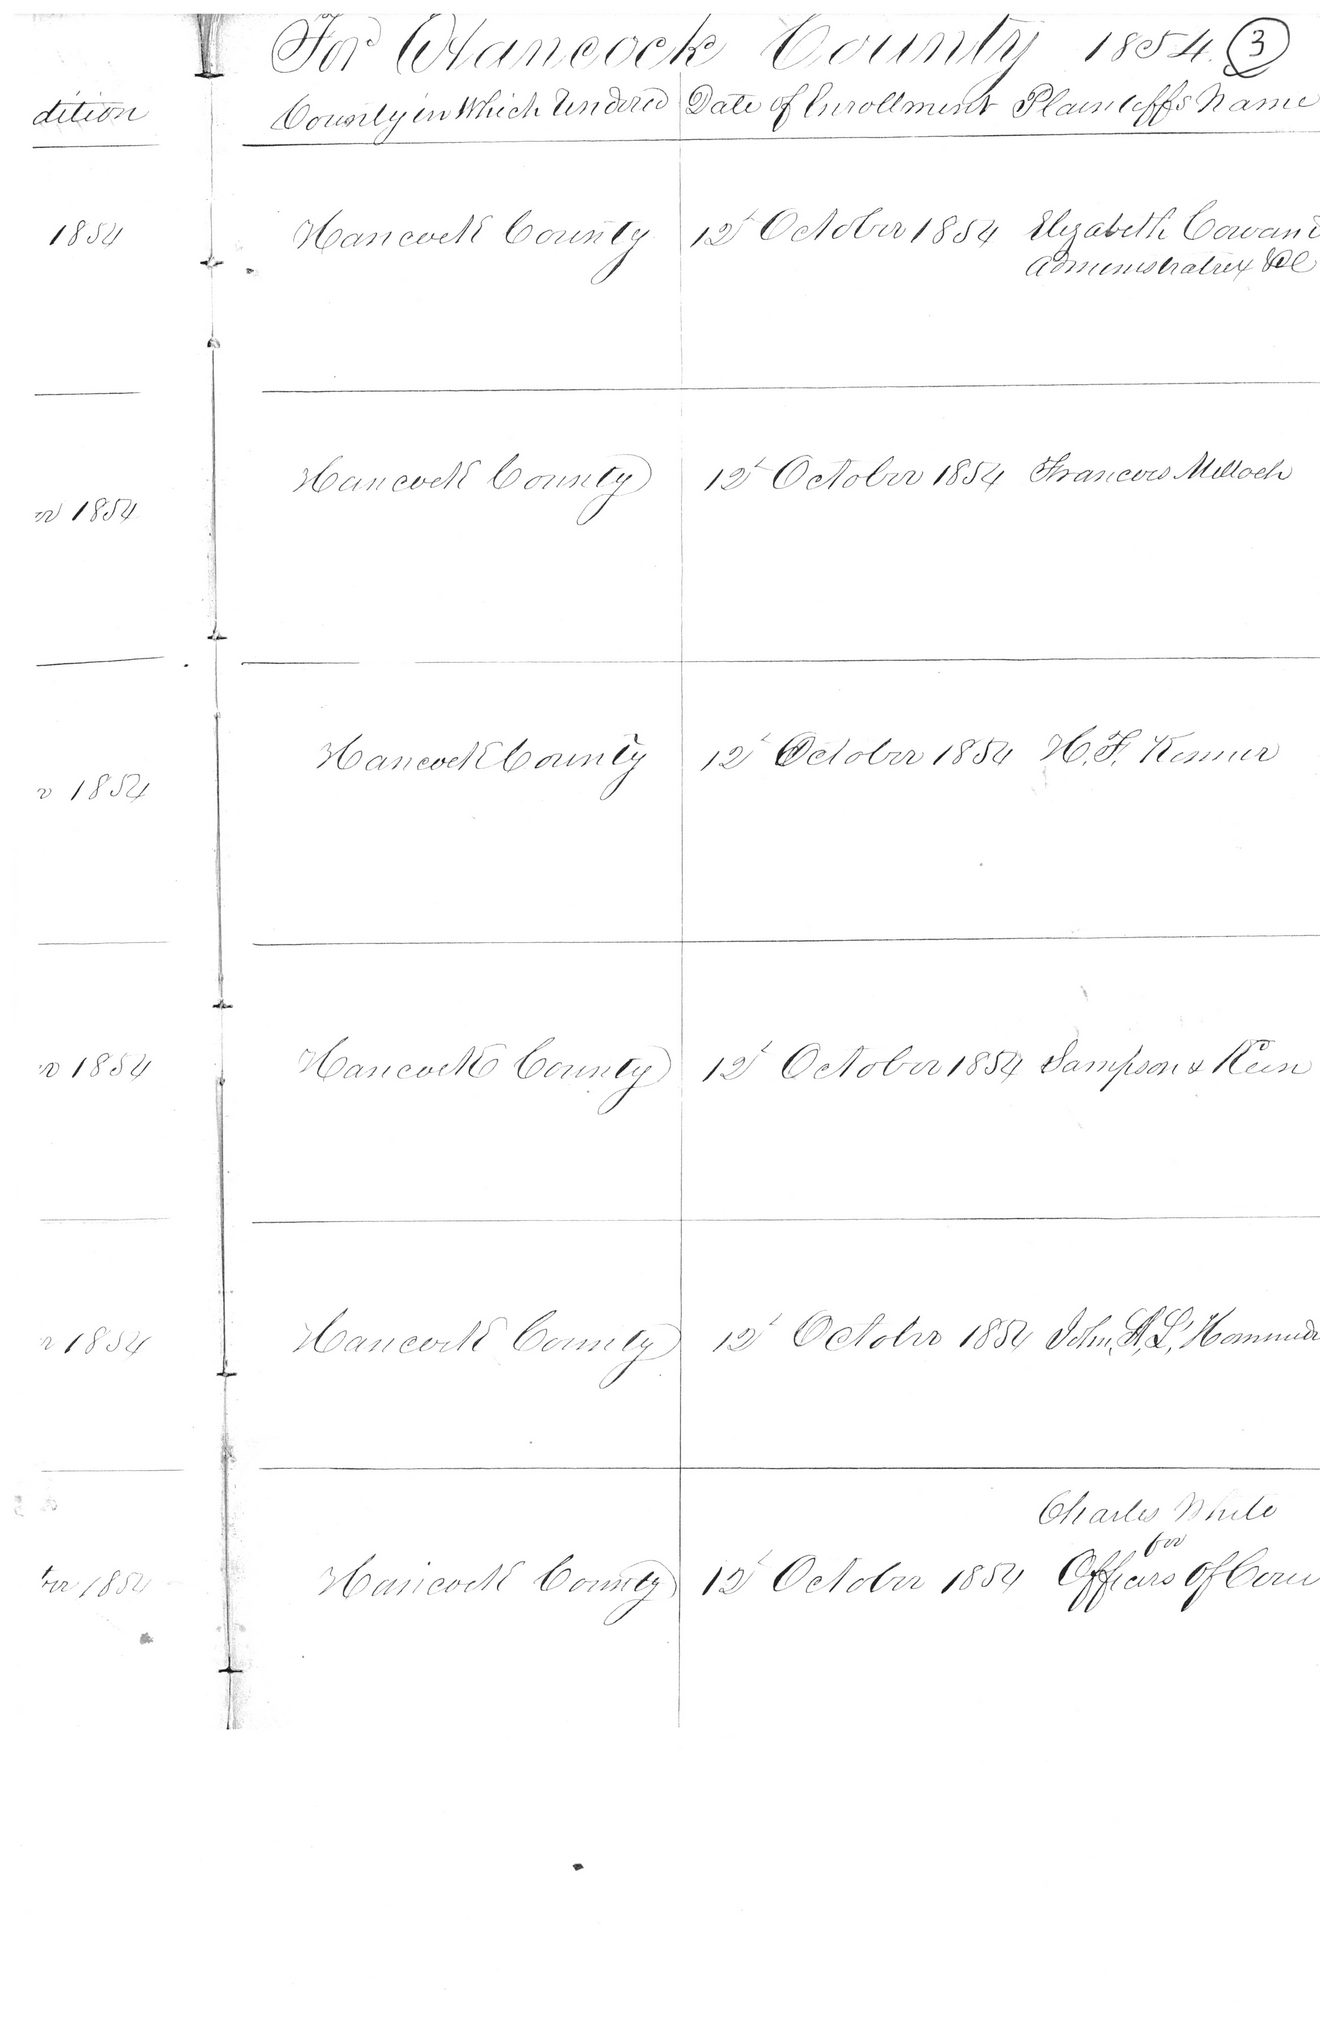 For Hancock County 1854. 3
dition County in Which Rendered Date of Enrollment Plaintiffs Name
1854 Hancock County 12 October 1854 Elizabeth
Administratrix
Hancock County 12 October 1854 Francois
er 1854
Hancock County 12 October 1854 H. F. Kenner
1854
r 1854 Hancock County 12 October 1854 Sampson & Keen
r 1854 Hancock County 12 October 1854 John, A, L,
Charles White
for
ber 1854 Hancock County 12 October 1854 Officers Of